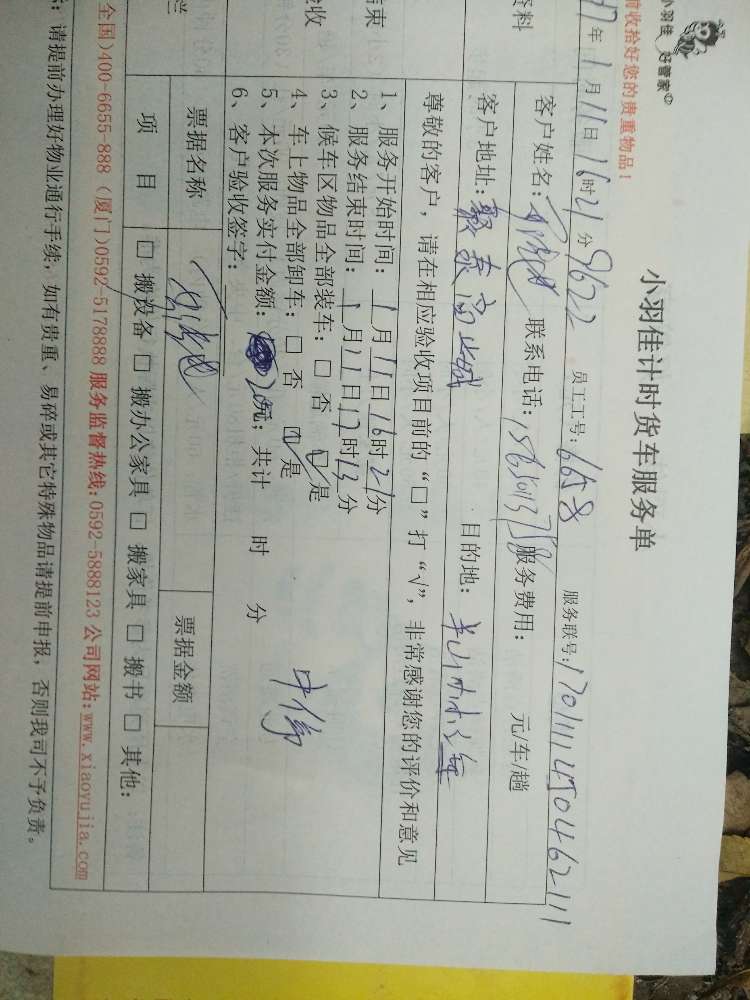 小羽佳 好管家
前收拾好您的贵重物品!
小羽佳计时货车服务单
年1月11日16时21分 9622 员工工号:6658 服务联号:1701111450462111
资料
客户姓名: 联系电话: 服务费用: 元/车/趟
客户地址: 目的地:
尊敬的客户,请在相应验收项目前的“□”打“√”,非常感谢您的评价和意见
结束
验收
1、服务开始时间:1月11日16时21分
2、服务结束时间:1月11日17时13分
3、候车区物品全部装车:□ 否 ☑ 是
4、车上物品全部卸车:□ 否 ☑ 是
5、本次服务实付金额: 元;共计 时 分
6、客户验收签字:
票据名称 票据金额
栏
项目 □ 搬设备 □ 搬办公家具 □ 搬家具 □ 搬书 □ 其他:
全国)400-6655-888 (厦门)0592-5178888 服务监督热线:0592-5888123 公司网站:www.xiaoyujia.com
:请提前办理好物业通行手续,如有贵重、易碎或其它特殊物品请提前申报,否则我司不予负责。